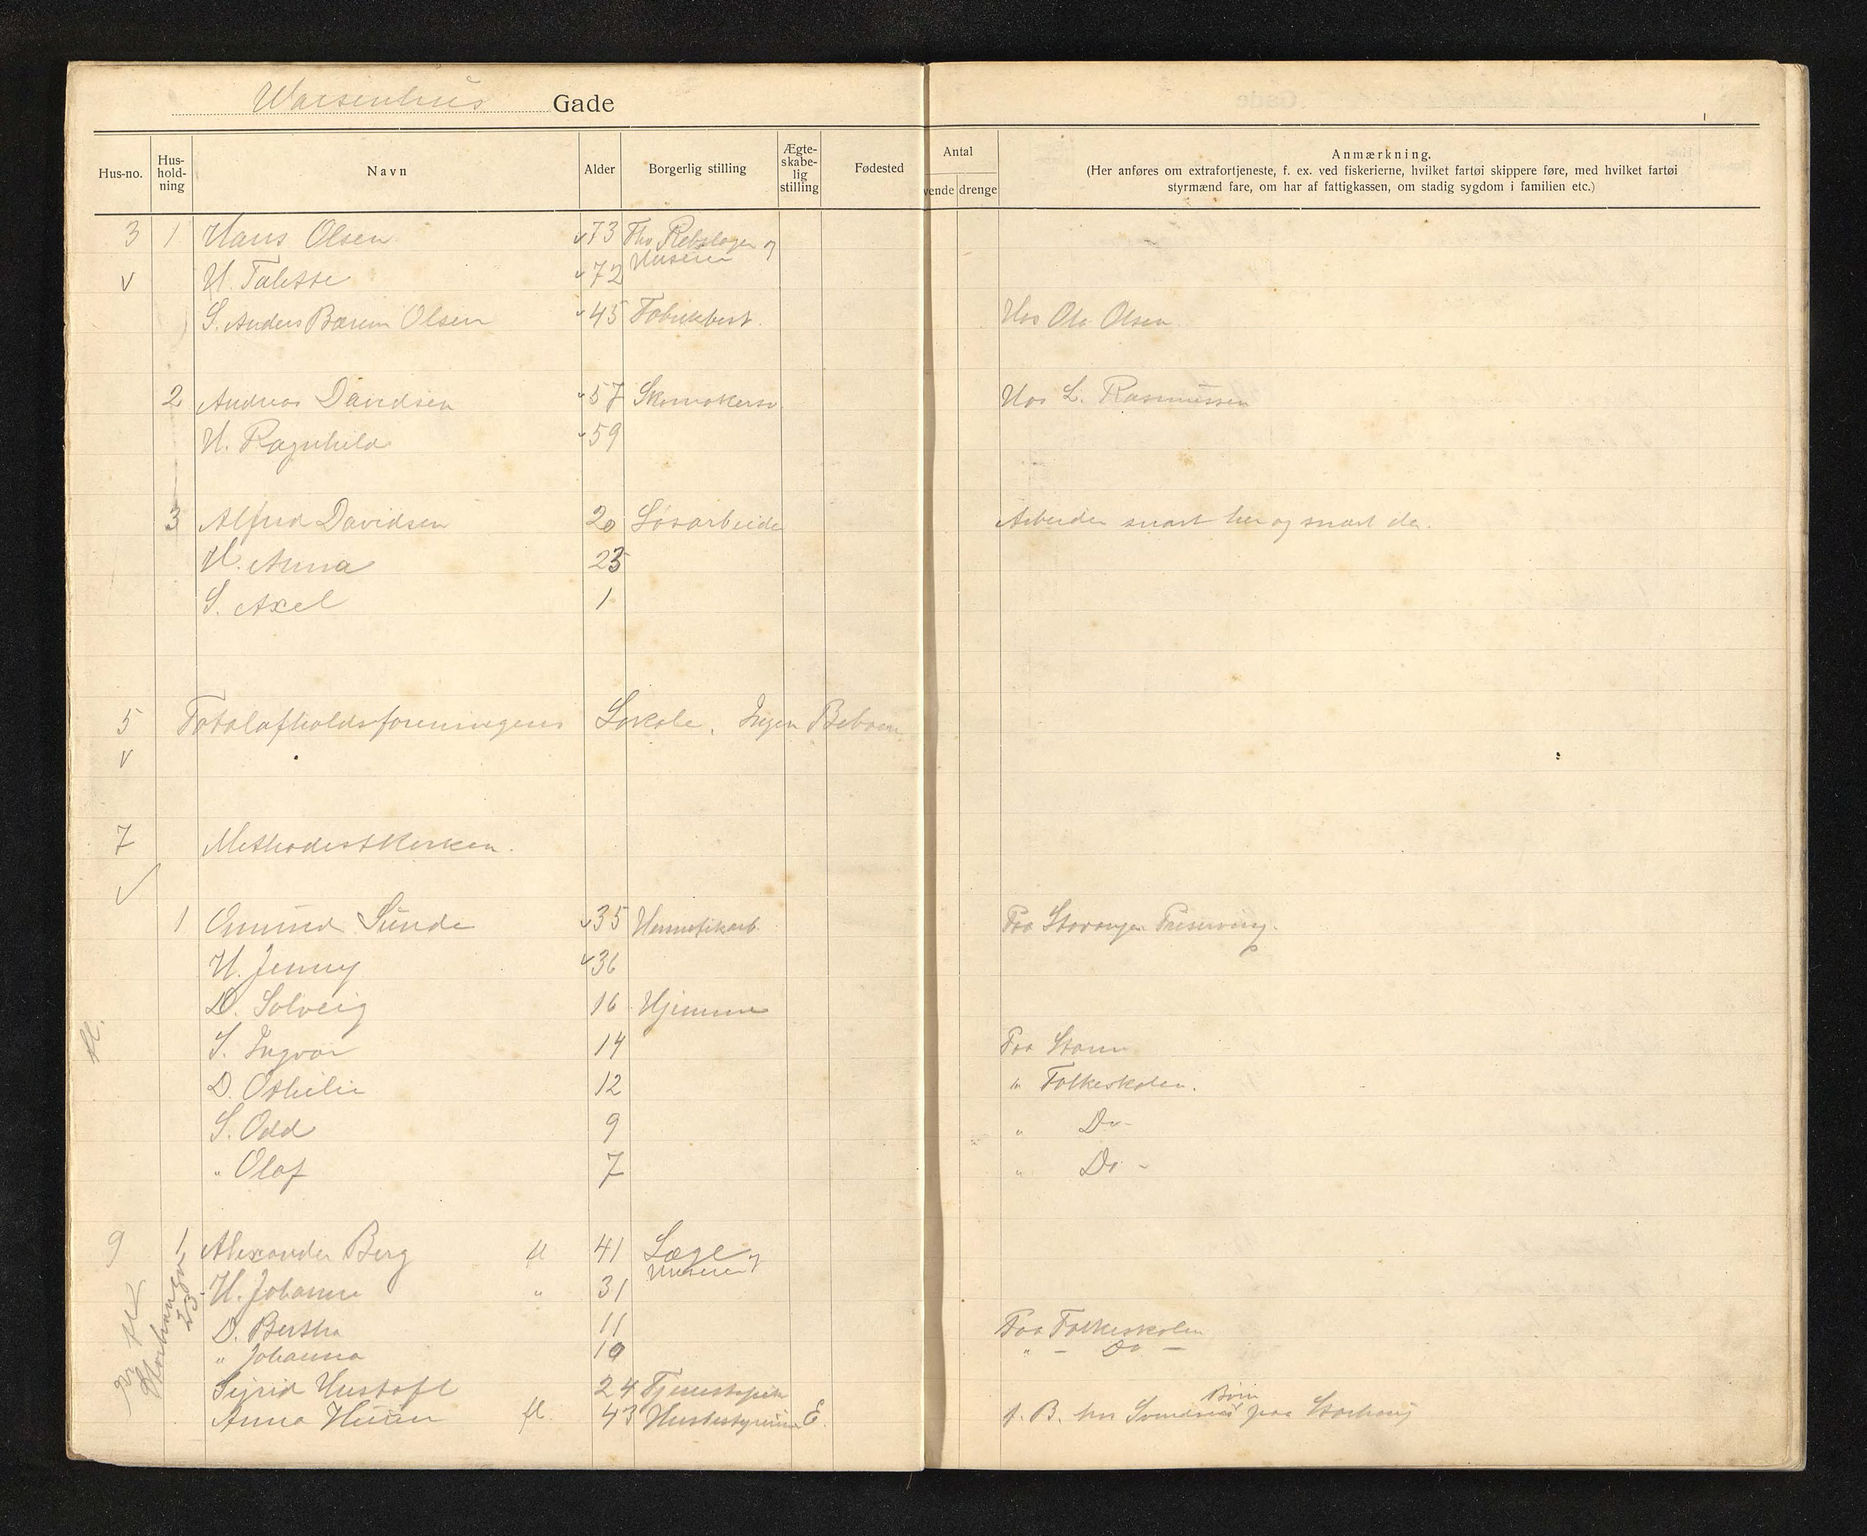 Waisenhus Gade
Hus-no. Hus-hold-ning Navn Alder Borgerlig stilling Ægte-skabe-lig stilling Fødested Antal vende drenge Anmærkning.
(Her anføres om extrafortjeneste, f. ex. ved fiskerierne, hvilket fartøi skippere føre, med hvilket fartøi
styrmænd fare, om har af fattigkassen, om stadig sygdom i familien etc.)
3 1 Hans Olsen 73 Rebslager og
Huseier
H. Tabitte 72
S. Anders Olsen 45 Fabrikbest. Hos Ole Olsen
2 Andreas Davidsen 57 Skomakersv. Hos L. Rasmussen
H. Ragnhild 59
3 Alfred Davidsen 20 Løsarbeide Arbeider snart her og snart der.
H. Anna 23
S. Axel 1
5 Totalafholdsforeningens Lokale. Ingen Beboer
7 Methodistkirken.
1 Omund Sunde 35 Hermetikarb. Paa Stavanger Preserving.
H. Jenny 36
D. Solveig 16 Hjemme
S. Ingvar 14 Paa
D. Othilie 12 " Folkeskolen.
S. Odd 9 " Do -
" Olaf 7 " Do -
9 1 Alexander Berg fl 41 Læge og
Huseier
H. Johanne " 31
D. Bertha 11 Paa Folkeskolen
" Johanna 10 " - Do -
Sigrid 24 Tjenestepike
Anna fl. 43 Husbestyrerinde E. Børn
f. B. hos paa Storhaug
Storhaugv. 23.
fl.